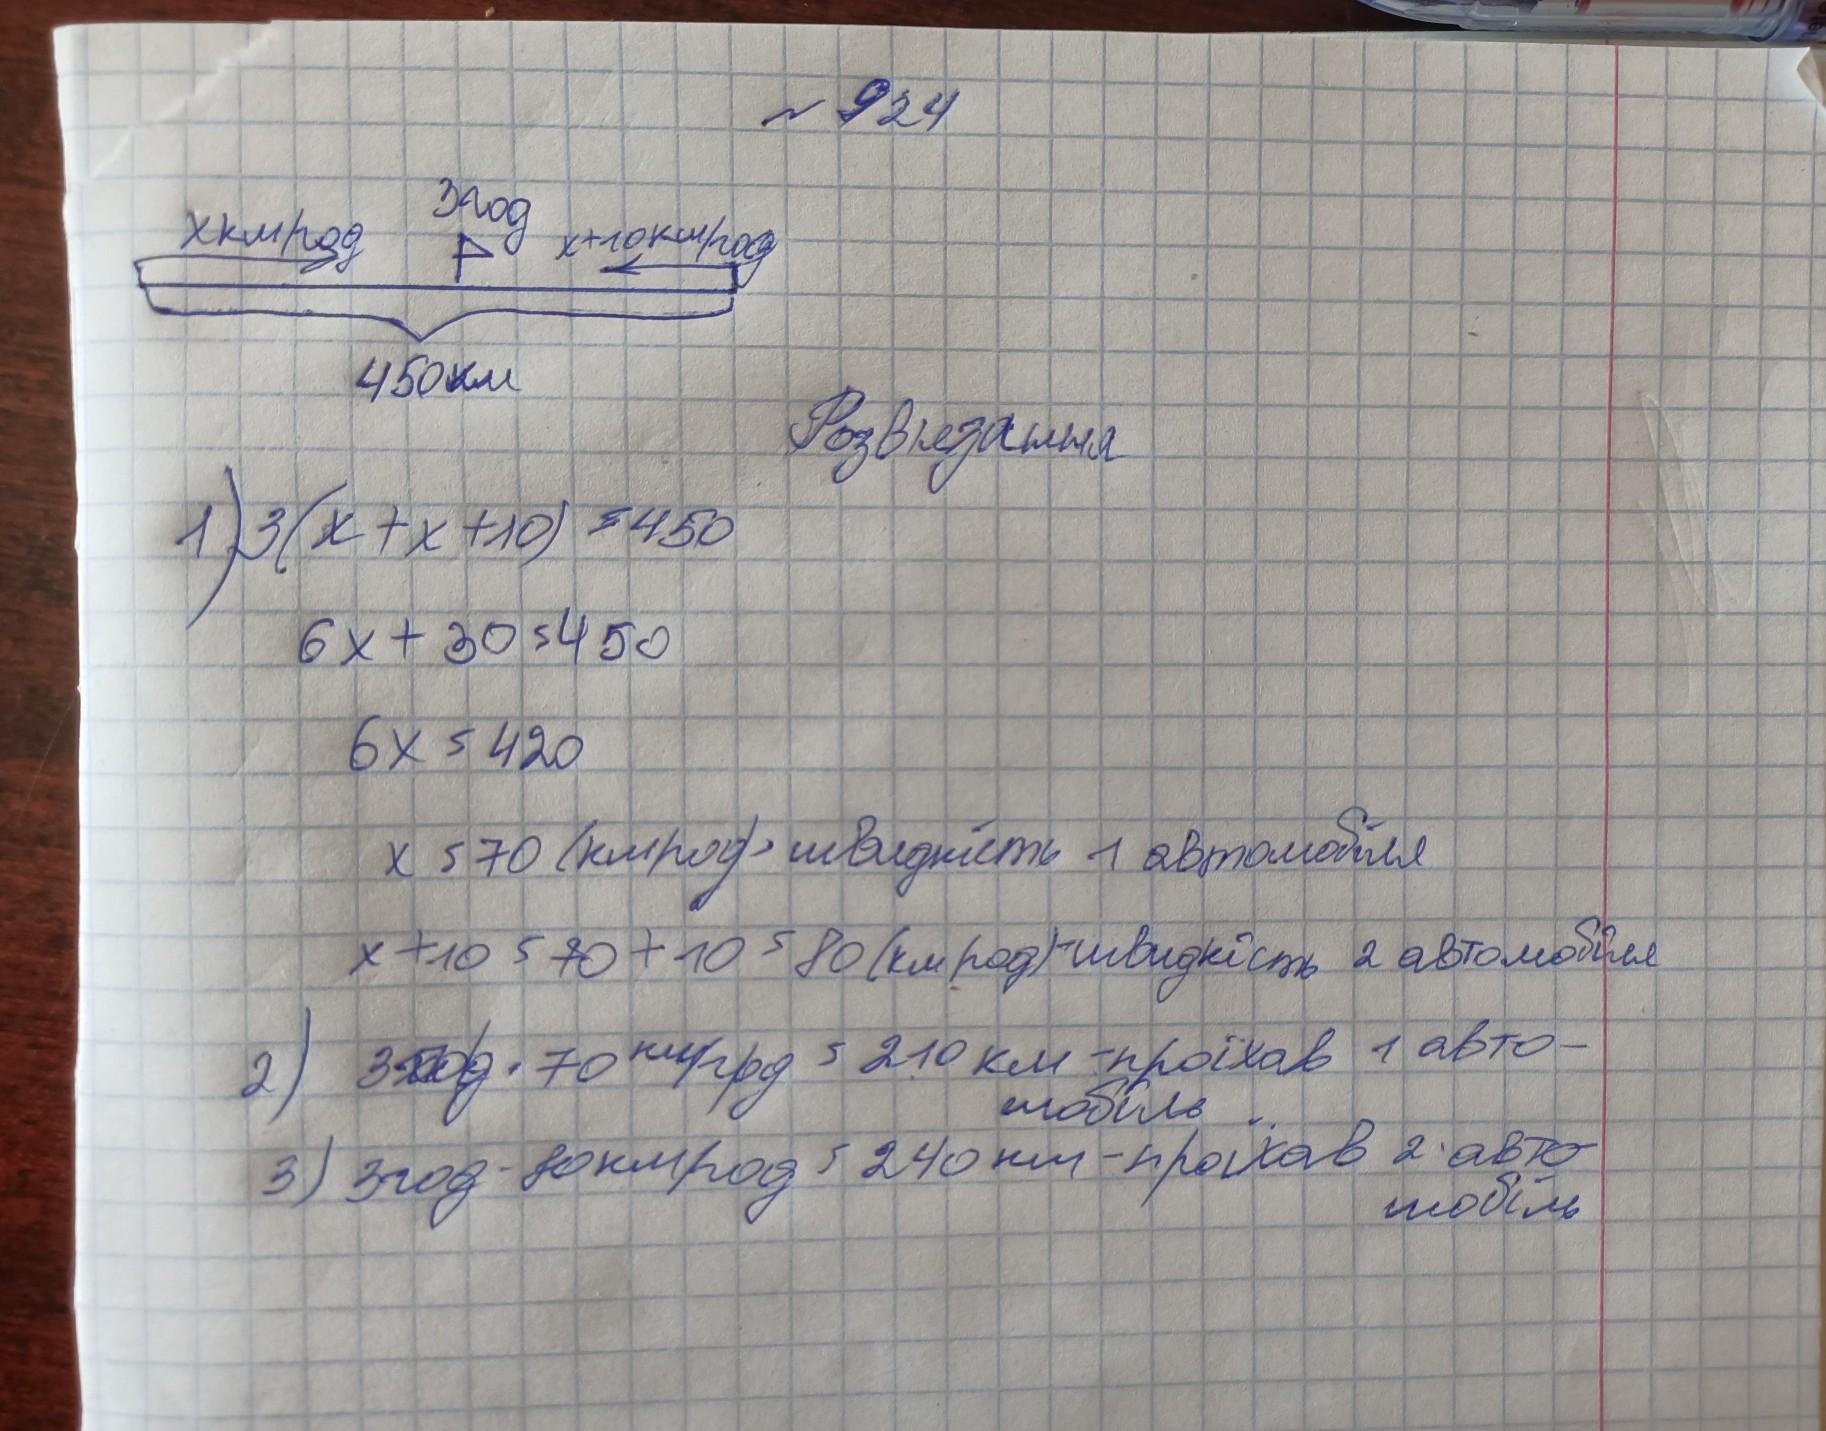 № 924
3 год
x км/год
x+10 км/год
450 км
Розвʼязання
1) 3(x + x + 10) = 450
6x + 30 = 450
6x = 420
x = 70 (км/год) - швидкість 1 автомобіля
x + 10 = 70 + 10 = 80 (км/год) - швидкість 2 автомобіля
2) 3 год · 70 км/год = 210 км - проїхав 1 авто-
мобіль
3) 3 год · 80 км/год = 240 км - проїхав 2 авто
мобіль